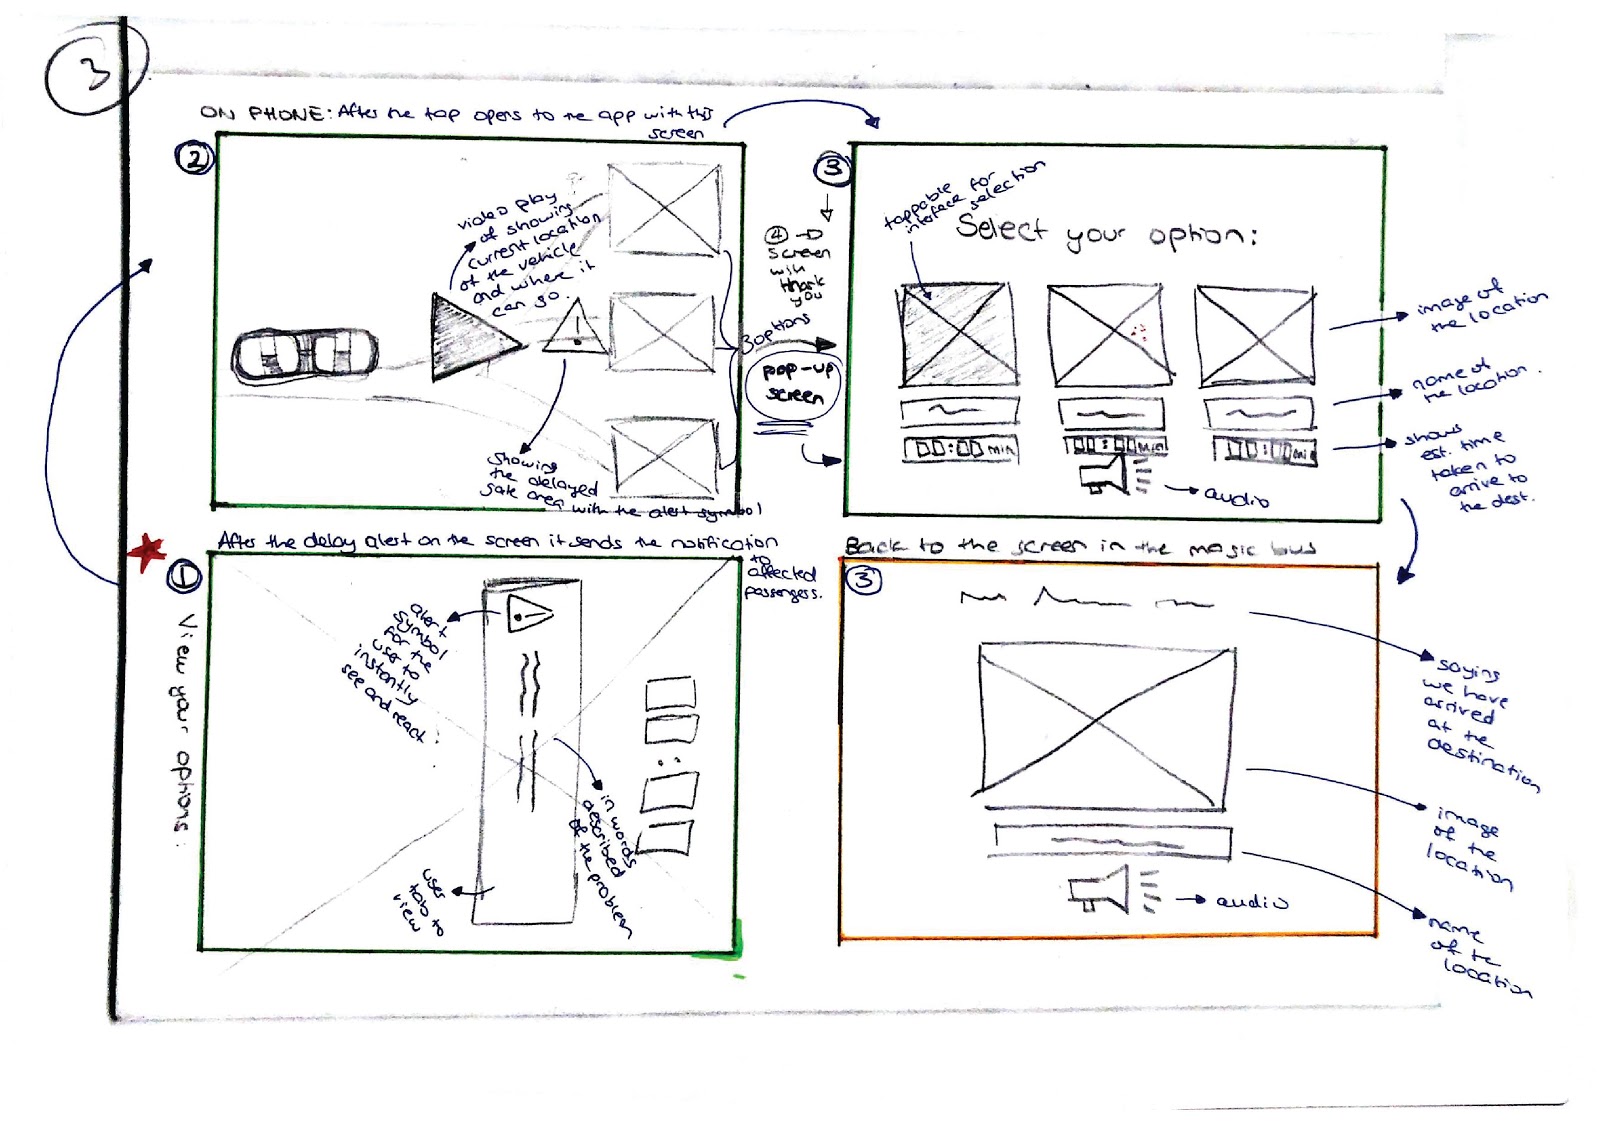 3
ON PHONE: After the tap opens to the app with this
screen
2
video play
of showing
current location
of the vehicle
and where it
can go.
!
3 options
showing
the delayed
safe area
with the alert symbol
4
screen
with
thank
you
pop-up
screen
3
tappable
interface for
selection
Select your option:
00:00 min
00:00 min
00:00 min
audio
image of
the location
name of
the location.
shows
est. time
taken to
arrive to
the dest.
After the delay alert on the screen it sends the notification
to
affected
passengers.
1
View your options:
alert
symbol
for the
user to
instantly
see and react.
!
in words
described
of the problem
user
tabs to
view
Back to the screen in the magic bus
3
saying
we have
arrived
at the
destination
image
of the
location
name
of the
location
audio